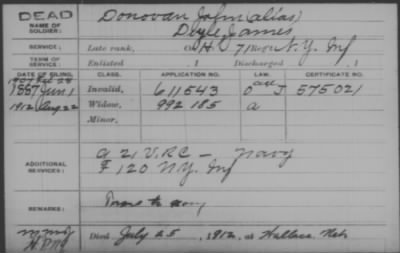 DEAD
NAME OF SOLDIER:
Donovan John (alias)
Doyle James
SERVICE:
Late rank, Co. H. 71 Regt N.Y. Inf
TERM OF SERVICE:
Enlisted , 1 Discharged , 1
DATE OF FILING. CLASS. APPLICATION NO. LAW. CERTIFICATE NO.
1907 Feb 28
1887 Jun 1 Invalid, 611543 575021
1912 Aug 22 Widow, 992 185 a
Minor,
ADDITIONAL SERVICES:
21 V.R.C — Navy
F 120 N.Y. Inf
REMARKS:
Died July 25, 1912, at Wallace, Neb